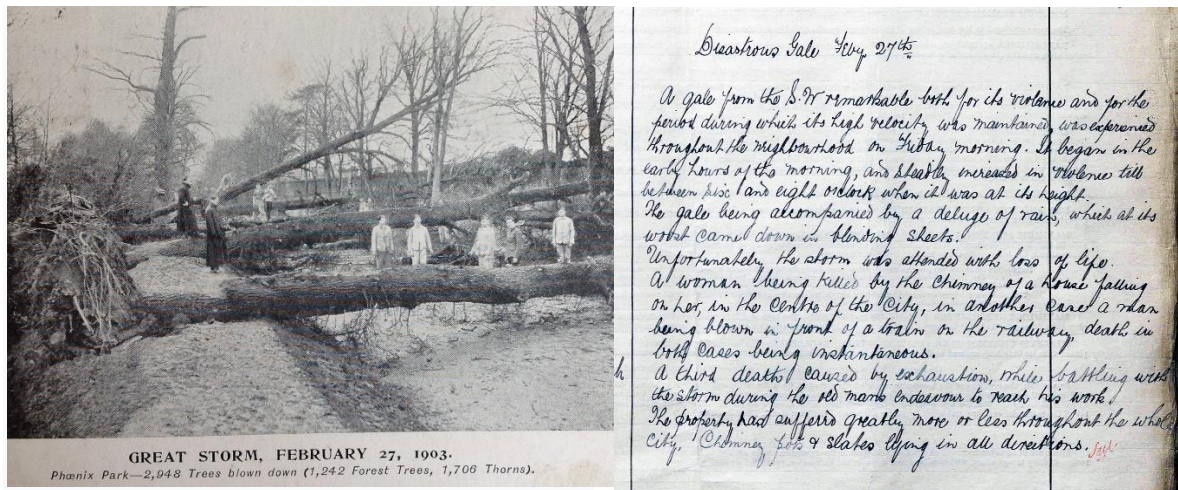 GREAT STORM, FEBRUARY 27, 1903.
Phœnix Park—2,948 Trees blown down (1,242 Forest Trees, 1,706 Thorns).
Disastrous Gale Feby 27th
A gale from the S.W remarkable both for its violence and for the
period during which its high velocity was maintained, was experienced
throughout the neighbourhood on Friday morning. It began in the
early hours of the morning, and steadily increased in violence till
between six and eight oclock when it was at its height.
The gale being accompanied by a deluge of rain, which at its
worst came down in blinding sheets.
Unfortunately the storm was attended with loss of life.
A woman being killed by the chimney of a house falling
on her, in the centre of the City, in another case a man
being blown in front of a train on the railway, death in
both cases being instantaneous.
h
A third death caused by exhaustion, while battling with
the storm during the old mans endeavour to reach his work
The property has sufferd greatly more or less throughout the whole
city. Chimney pots & slates lying in all directions.